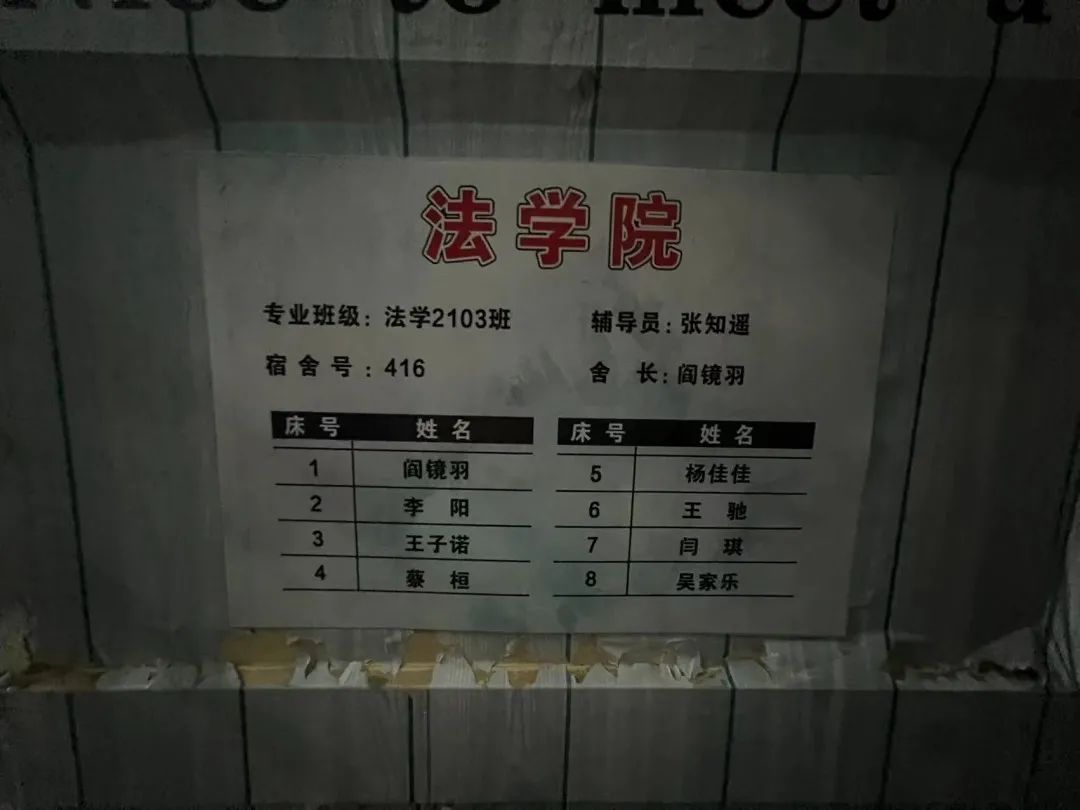 Nice to meet u
法学院
专业班级：法学2103班 辅导员：张知遥
宿舍号：416 舍长：阎镜羽
床号 姓名 床号 姓名
1 阎镜羽 5 杨佳佳
2 李阳 6 王驰
3 王子诺 7 闫琪
4 蔡桓 8 吴家乐